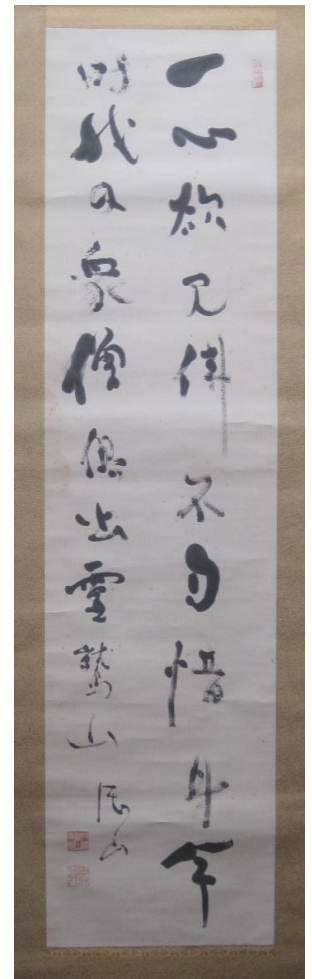 一心欲見佛不自惜身命
時我及衆僧倶出霊鷲山